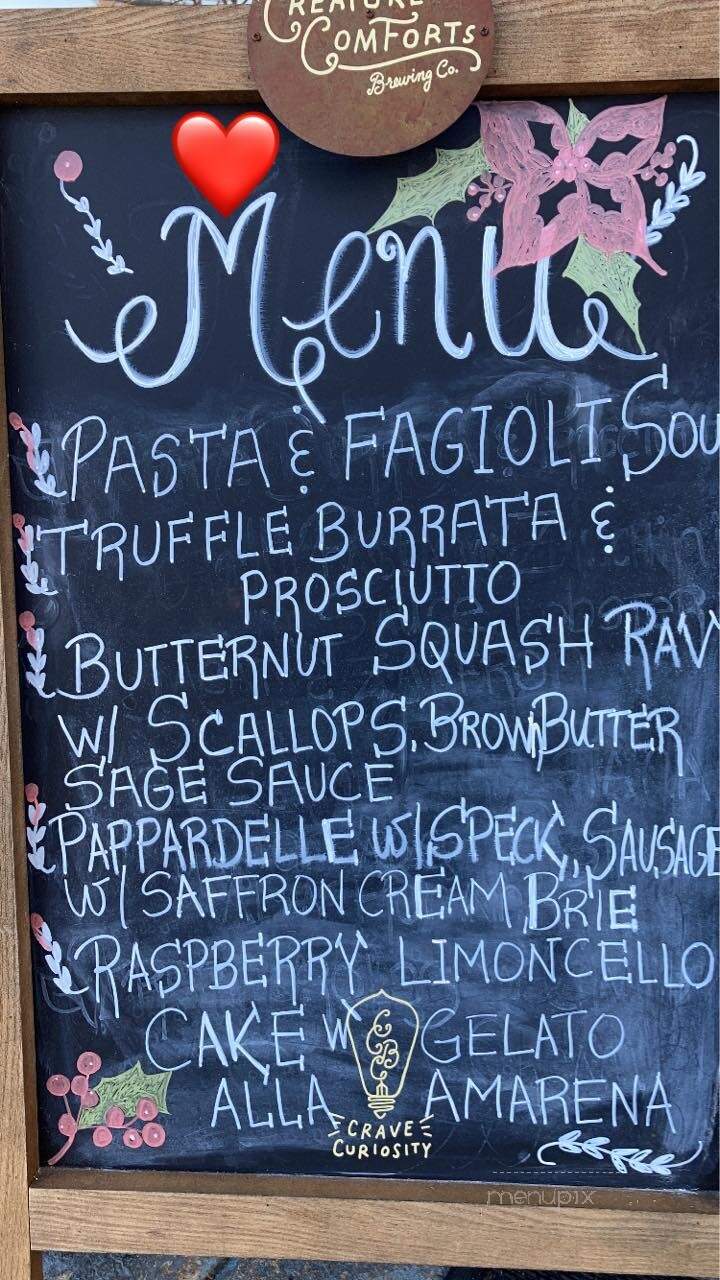 CREATURE
COMFORTS
Brewing Co.
Menu
PASTA & FAGIOLI SOU
TRUFFLE BURRATA &
PROSCIUTTO
BUTTERNUT SQUASH RAV
W/ SCALLOPS, BROWN BUTTER
SAGE SAUCE
PAPPARDELLE W/ SPECK, SAUSAGE
W/ SAFFRON CREAM, BRIE
RASPBERRY LIMONCELLO
CAKE W/ GELATO
ALLA AMARENA
CCBC
CRAVE
CURIOSITY
menupix